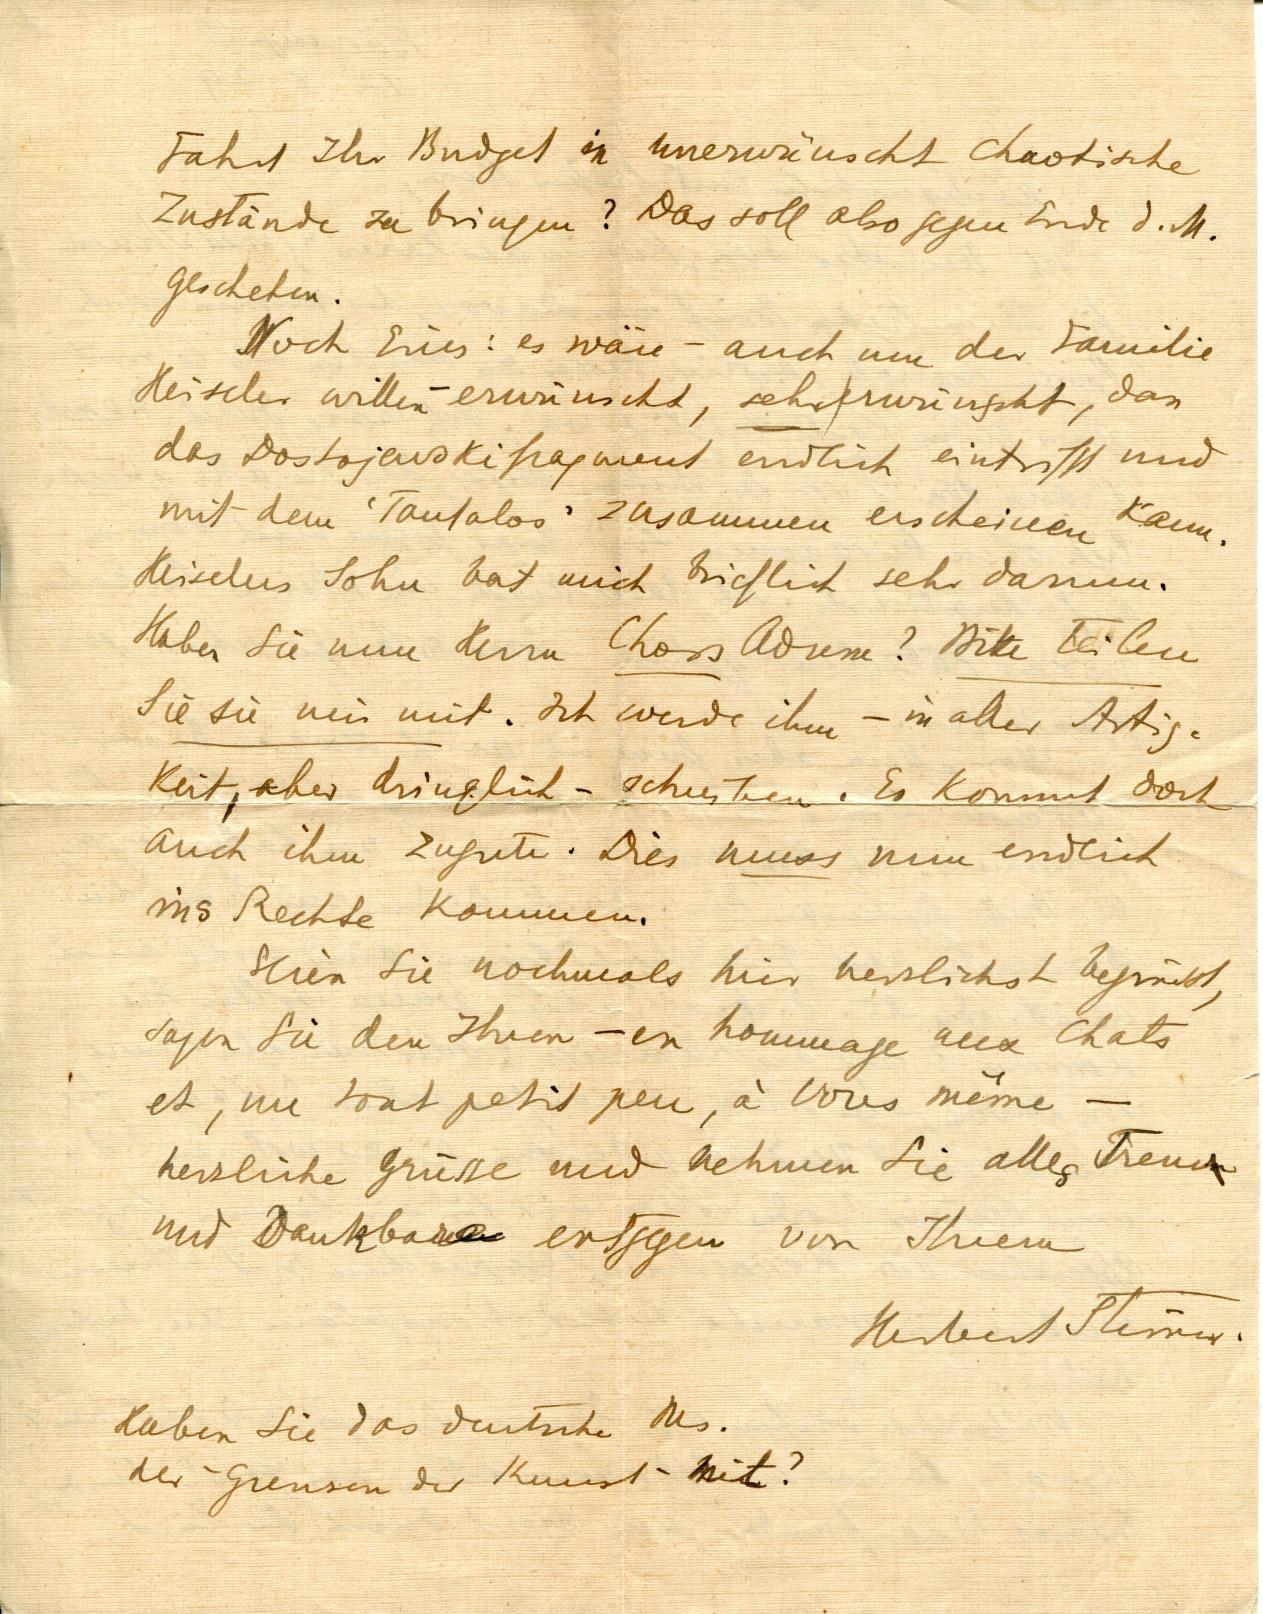 Fahrt Ihr Budget in unerwünscht chaotische
Zustände zu bringen? Das soll also gegen Ende d. M.
geschehen.
Noch Eines: es wäre – auch um der Familie
Heiseler willen – erwünscht, sehr erwünscht, dass
das Dostojewskifragment endlich eintrifft und
mit dem 'Tantalos' zusammen erscheinen kann.
Heiselers Sohn bat mich brieflich sehr darum.
Haben Sie nun Herrn Chors Adresse? Bitte teilen
Sie sie mir mit. Ich werde ihm – in aller Artig-
keit, aber dringlich – schreiben. Es kommt doch
auch ihm zugute. Dies muss nun endlich
ins Rechte kommen.
Seien Sie nochmals hier herzlichst begrüsst,
sagen Sie den Ihren – en hommage aux Chats
et, un tout petit peu, à Vous même –
herzliche Grüsse und nehmen Sie alles
und entgegen von Ihrem
Herbert Steiner.
Haben Sie das deutsche Ms.
der – Grenzen der Kunst – mit?